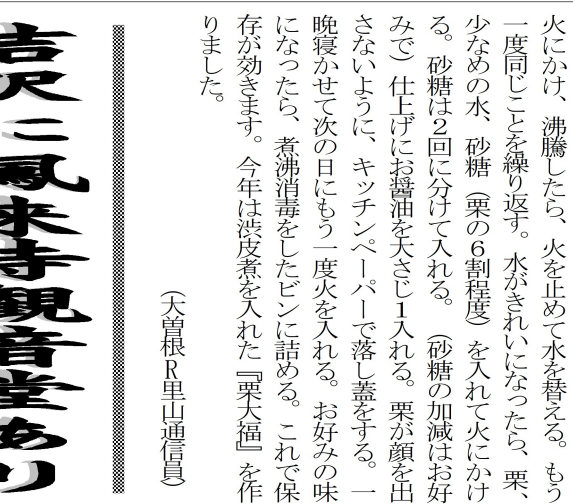 火にかけ、沸騰したら、火を止めて水を替える。もう
一度同じことを繰り返す。水がきれいになったら、栗、
少なめの水、砂糖（栗の6割程度）を入れて火にかけ
る。砂糖は2回に分けて入れる。（砂糖の加減はお好
みで）仕上げにお醤油を大さじ1入れる。栗が顔を出
さないように、キッチンペーパーで落し蓋をする。一
晩寝かせて次の日にもう一度火を入れる。お好みの味
になったら、煮沸消毒をしたビンに詰める。これで保
存が効きます。今年は渋皮煮を入れた『栗大福』を作
りました。
（大曽根R里山通信員）
吉沢に鳳来寺観音堂あり